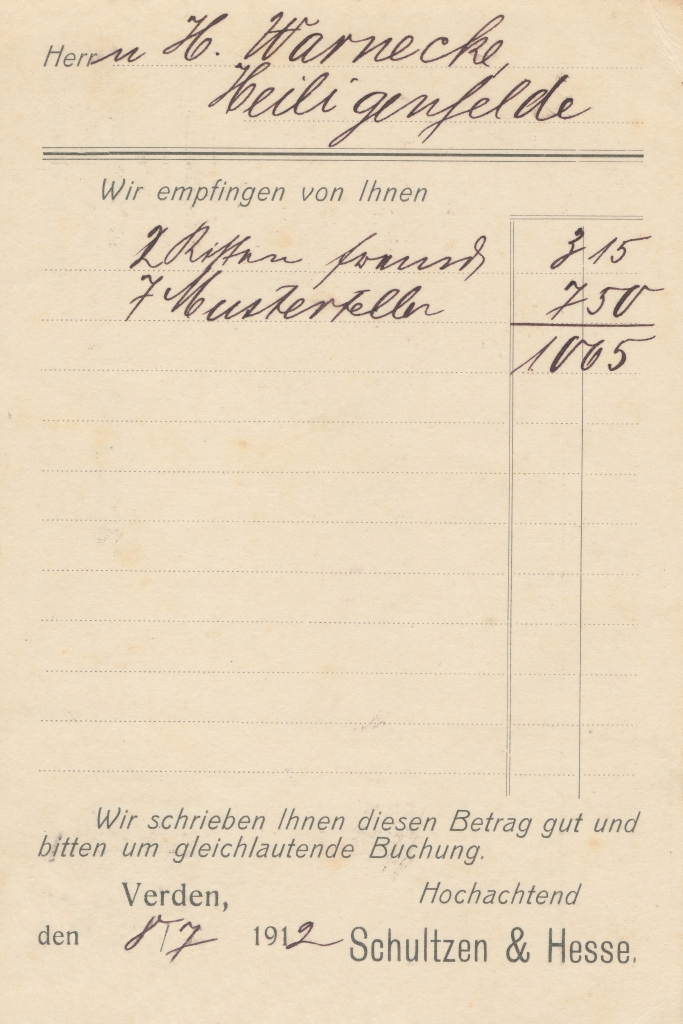 Herrn H. Warnecke,
Heiligenfelde
Wir empfingen von Ihnen
2 Kisten fremd 3 15
7 Musterteller 7 50
10 65
Wir schrieben Ihnen diesen Betrag gut und
bitten um gleichlautende Buchung.
Verden, Hochachtend
den 8/7 1912 Schultzen & Hesse.